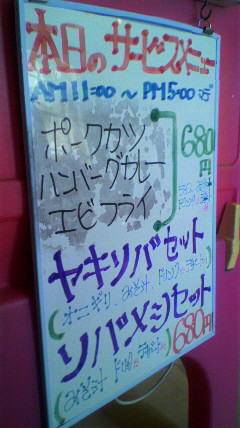 本日のサービスメニュー
AM11:00 ~ PM5:00まで
ポークカツ
ハンバーグカレー
エビフライ
680円
ヤキソバセット
(オニギリ、みそ汁、ドリンク
ソバメシセット
680円
(みそ汁、ドリンク